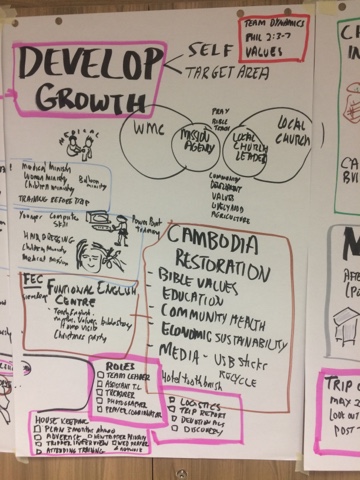 TEAM DYNAMICS
PHIL 2:2-7
VALUES
DEVELOP
GROWTH
SELF
TARGET AREA
MEDICAL
WMC
MISSION
AGENCY
LOCAL
CHURCH
LEADER
LOCAL
CHURCH
PRAY
BIBLE
TEACH
COMMUNITY
DEVELOPMENT
VALUES
AGRICULTURE
Medical Ministry
Women Ministry
Children Ministry
Balloon
ministry
TRAINING BEFORE TRIP
Younger Computer
Skill
Power Point
Training
HAIRDRESSING
Children Ministry
Medical Mission
FEC
FUNTIONAL ENGLISH
CENTRE
Teach English,
Values, bible story
Home visit
Christmas party
CAMBODIA
RESTORATION
- BIBLE VALUES
- EDUCATION
- COMMUNITY HEALTH
- ECONOMIC SUSTAINABILITY
- MEDIA - USB Sticks
RECYCLE
Hotel toothbrush
ROLES
TEAM LEADER
ASSISTANT T.L
TREASURER
PHOTOGRAPHER
PRAYER COORDINATOR
LOGISTICS
TRIP REPORT
DEVOTIONALS
DISCOVERY
HOUSE KEEPING
PLAN 3 months Ahead
ATTENDING TRAINING
CH
IN
CA
BUI
M
AFTE
(Po
TRIP
MAY 2
LOOK OUT
POST